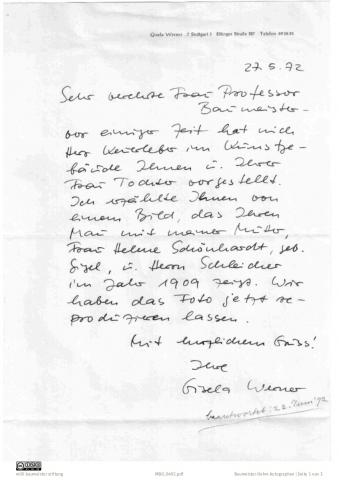 Gisela Werner 7 Stuttgart 1 Eßlinger Straße
27.5.72
Sehr verehrte Frau Professor
Baumeister –
vor einiger Zeit hat mich
Herr im Kunstge-
bäude Ihnen u. Ihrer
Frau Tochter vorgestellt.
Ich erzählte Ihnen von
einem Bild, das Ihren
Mann mit meiner Mutter,
Frau Helene Schönhardt, geb.
Sigel, u. Herrn Schleicher
im Jahr 1909 zeigt. Wir
haben das Foto jetzt re-
produzieren lassen.
Mit herzlichem Gruss!
Ihre
Gisela Werner
beantwortet: 22. Juni 72
willi baumeister stiftung
Baumeister-Archiv Autographen | Seite 1 von 1